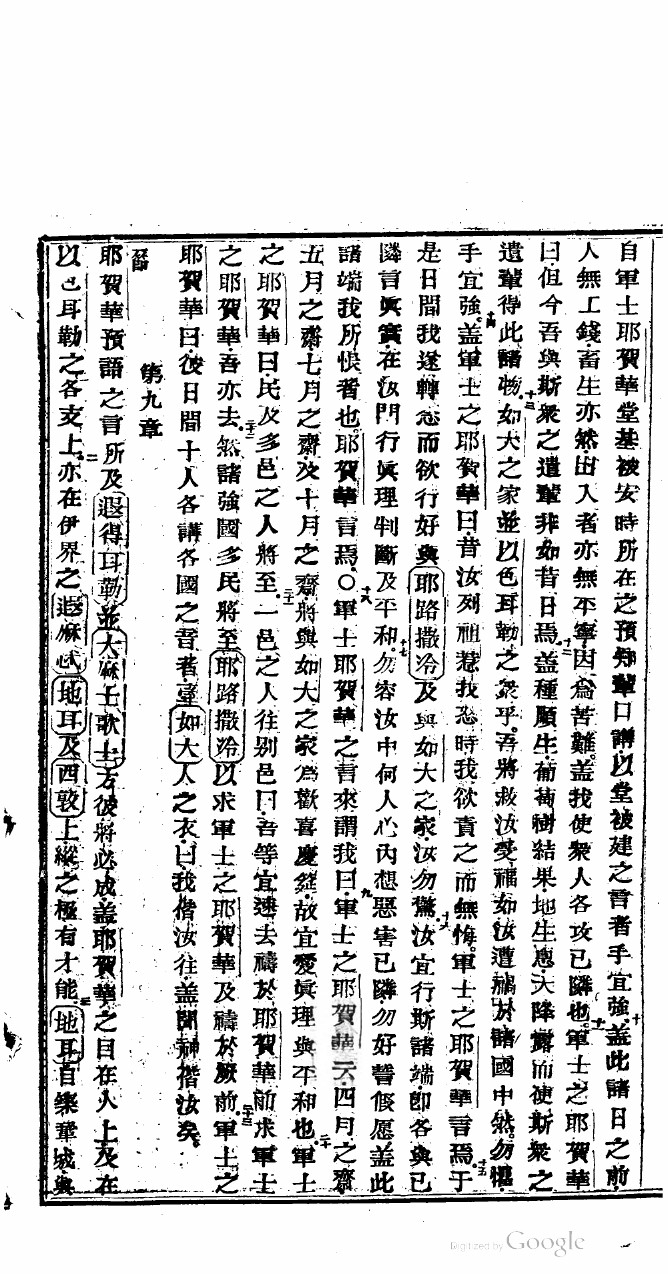 自軍士耶賀華堂基被安時所在之預知輩口講以堂被建之言者手宜強蓋此諸日之前
人無工錢畜生亦然出入者亦無平寧因為苦難蓋我使衆人各攻己隣也軍士之耶賀華
曰但今吾與斯衆之遺輩非如昔日焉蓋種順生葡萄樹結果地生應天降露而使斯衆之
遺輩得此諸物如大之家並以色耳勒之衆乎吾將救汝受福如汝遭禍於諸國中然勿懼
手宜強蓋軍士之耶賀華曰昔汝列祖惹我怒時我欲責之而無悔軍士之耶賀華言焉于
是日間我遂轉念而欲行好與耶路撒冷及與如大之家汝勿驚汝宜行斯諸端即各與己
隣言眞實在汝門行眞理判斷及平和勿容汝中何人心內想惡害己隣勿好誓假愿蓋此
諸端我所恨者也耶賀華言焉〇軍士耶賀華之言來謂我曰軍士之耶賀華云四月之齋
五月之齋七月之齋及十月之齋將與如大之家為歡喜慶筵故宜愛眞理與平和也軍士
之耶賀華曰民及多邑之人將至一邑之人往别邑曰吾等宜速去禱於耶賀華前求軍士
之耶賀華吾亦去然諸強國多民將至耶路撒冷以求軍士之耶賀華及禱於厥前軍士之
耶賀華曰彼日間十人各講各國之音者拿如大人之衣曰我偕汝往蓋聞神偕汝矣
第九章
耶賀華預語之言所及遐得耳勒並大麻士歌士方彼將必成蓋耶賀華之目在人上及在
以色耳勒之各支上亦在伊界之遐麻忒地耳及西敦上縱之極有才能地耳自築鞏城與
Digitized by Google